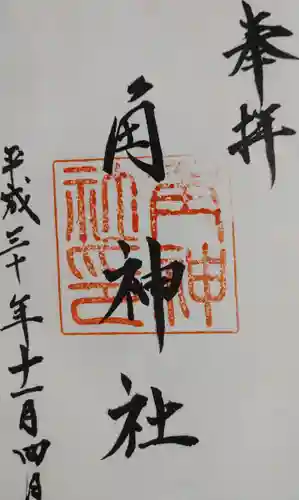 奉拝
角神社
角神
社印
平成三十年十一月四日